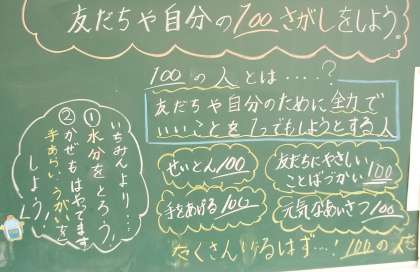 友だちや自分の100さがしをしよう。
100の人とは‥‥?
友だちや自分のために全力で
いいことを1つでもしようとする人
せいとん100
友だちにやさしい
ことばづかい100
手をあげる100
元気なあいさつ100
たくさんいるはず…!100の人を
いちみんより…
①水分をとろう!
②かぜもはやてます
手あらい、うがいを
しよう!